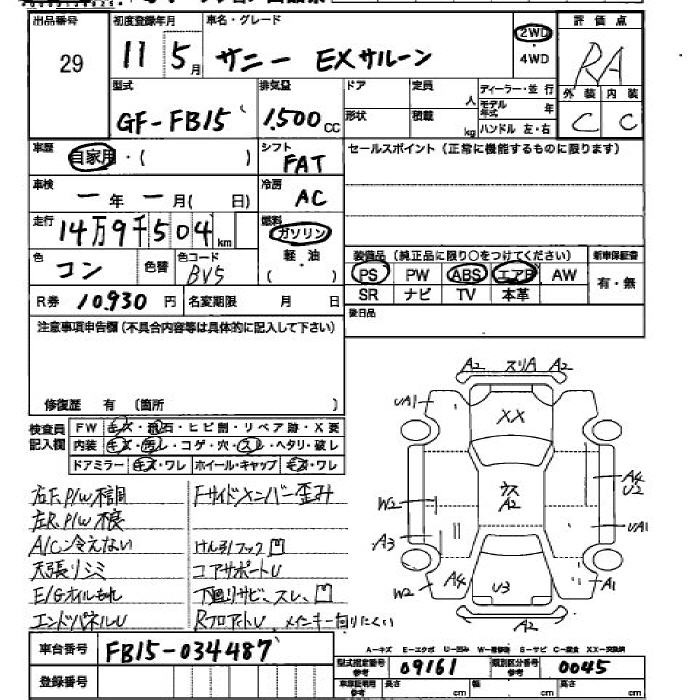 出品番号 初度登録年月 車名・グレード 評価点
29 11 5月 サニー EXサルーン 2WD ・ 4WD RA
型式 排気量 ドア 定員 人 ディーラー・並 行 外装 内装
GF-FB15 1,500cc 形状 積載 kg モデル年式 年 C C
ハンドル 左・右
車歴 自家用・( ) シフト FAT セールスポイント(正常に機能するものに限ります)
車検 ー年ー月( 日) 冷房 AC
走行 14万9千504km 燃料 ガソリン
軽・油
( )
色 コン 色替 色コード BV5
装備品(純正品に限り○をつけてください) 新車保証書
PS PW ABS エアB AW 有・無
SR ナビ TV 本革
R券 10,930円 名変期限 月 日
後日品
注意事項申告欄(不具合内容等は具体的に記入して下さい)
修復歴 有 (箇所 )
検査員記入欄 FW キズ・飛石・ヒビ割・リペア跡・X要
内装 キズ・汚レ・コゲ・穴・スレ・ヘタリ・破レ
ドアミラー キズ・ワレ ホイール・キャップ キズ・ワレ
A2 スリA A2
UA1
XX
ウス A2
A4 U2
W2
UA1
A3
W2 A4 U3 A1
A2
右F.P/W不調 Fサイドメンバー歪み
左R.P/W不良
A/C冷えない けん引フック凹
天張りシミ コアサポートU
E/Gオイルもれ 下廻りサビ、スレ、凹
エンドパネルU RフロアートU メインキー回りにくい
車台番号 FB15-034487
登録番号
A-キズ E-エクボ U-凹み W-補修跡 S-サビ C-腐食 XX-交換済
型式指定番号 参考 09161 類別区分番号 参考 0045
車庫証明用 参考 長さ cm 幅 cm 高さ cm